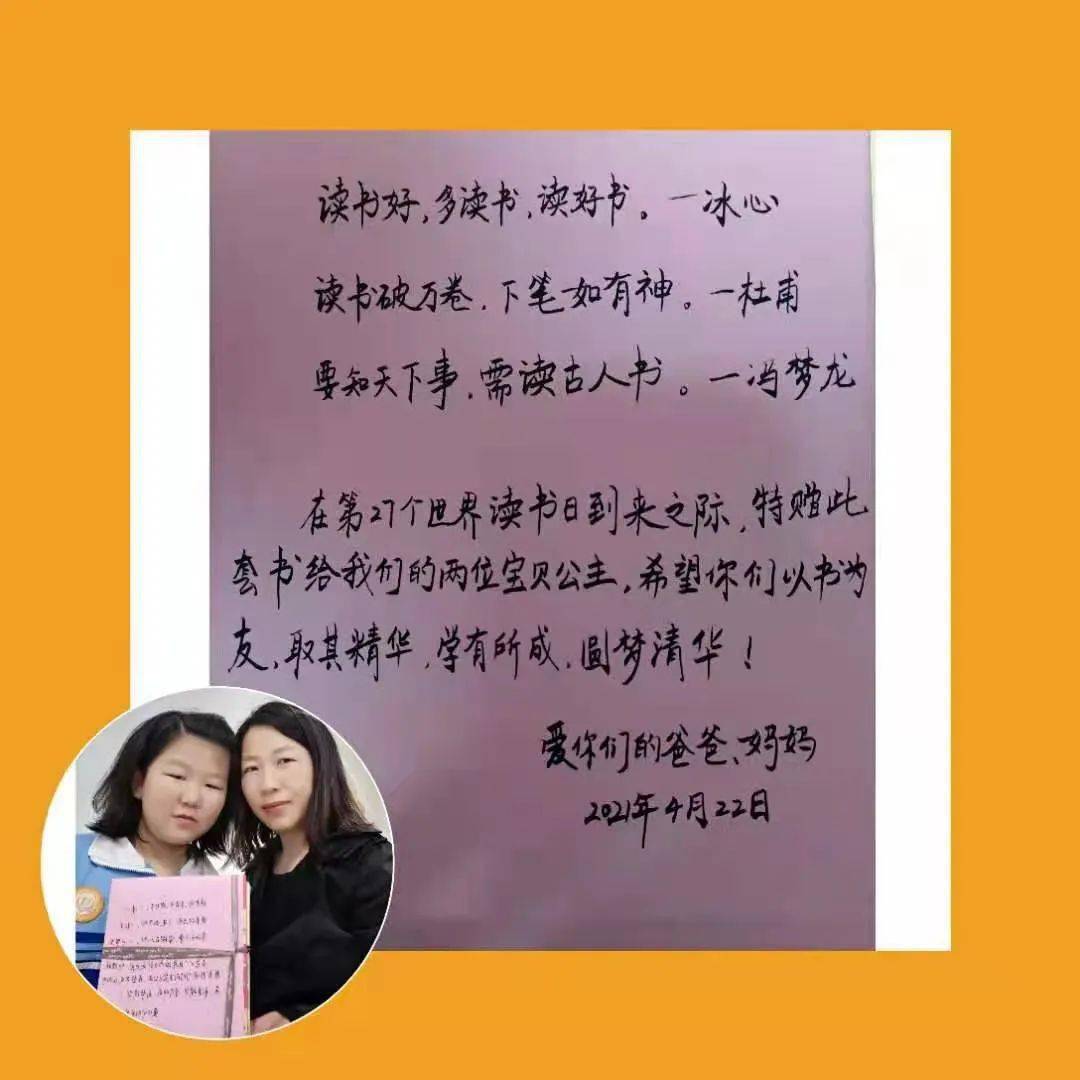 读书好，多读书，读好书。—冰心
读书破万卷，下笔如有神。—杜甫
要知天下事，需读古人书。—冯梦龙
在第27个世界读书日到来之际，特赠此
套书给我们的两位宝贝公主，希望你们以书为
友，取其精华，学有所成，圆梦清华！
爱你们的爸爸、妈妈
2021年4月22日